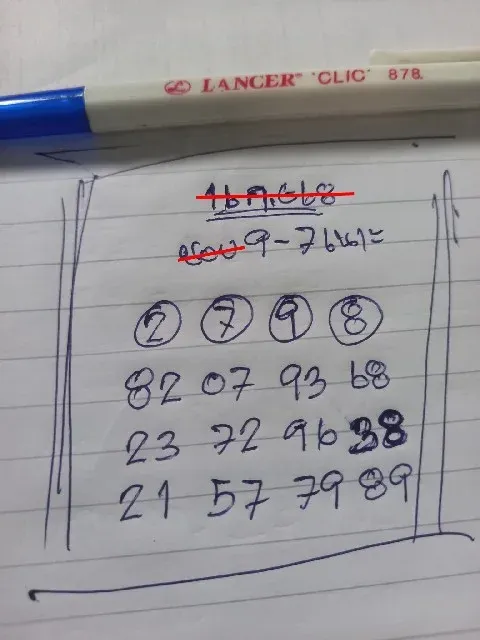 LANCER® 'CLIC' 878.
16 ก.ค 68
9-7
2 7 9 8
82 07 93 68
23 72 96 38
21 57 79 89